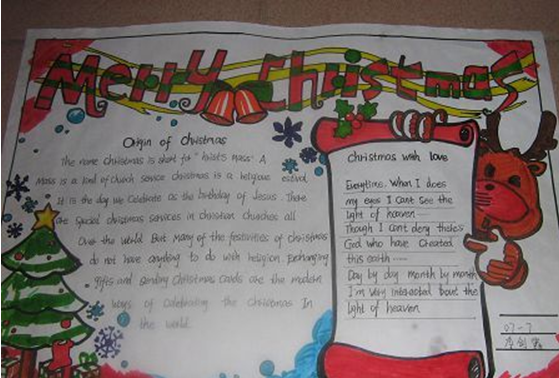 Merry Christmas
Origin of Christmas
The name Christmas is short for "hrist's Mass". A
Mass is a kind of Church service christmas is a religious estival
It is the day we celebrate as the birthday of Jesus. There
are Special christmas services in christian churches all
Over the World But Many of the festivities of christmas
do not have anything to do with religion. Exchanging
gifts and Sending Christmas Cards are the modern
Ways of Celebrating the Christmas In
the world.
christmas with love
Everytime. When I does
my eyes I can't see the
light of heaven
Though I can't deny there's
God who have created
this earth
Day by day month by month
I'm Very interacted 'bout the
light of heaven
07-7